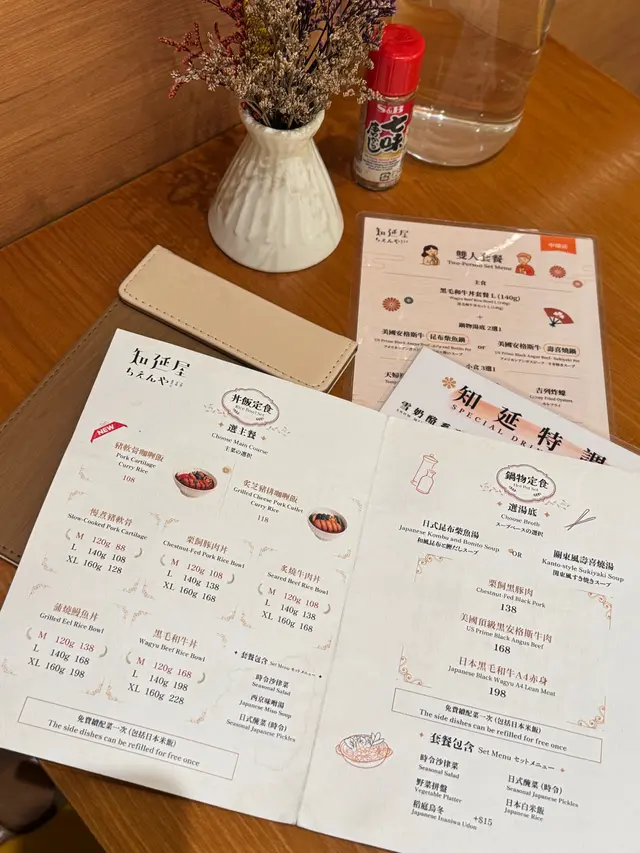 S&B
七味
唐からし
知延屋
ちえんや
雙人套餐
Two-Person Set Menu
主食
黑毛和牛丼套餐 L (140g)
Wagyu Beef Rice Bowl L (140g)
+
鍋物湯底 2選1
美國安格斯牛 昆布柴魚鍋 or 美國安格斯牛 壽喜燒鍋
小食 3選1
吉列炸蠔
知延特調
SPECIAL
知延屋
ちえんや
丼飯定食
Rice Bowl Set
選主餐
Choose Main Course
主菜の選択
NEW
豬軟骨咖喱飯
Pork Cartilage
Curry Rice
108
炙芝豬排咖喱飯
Grilled Cheese Pork Cutlet
Curry Rice
118
慢煮豬軟骨
Slow-Cooked Pork Cartilage
M 120g 88
L 140g 108
XL 160g 128
栗飼豚肉丼
Chestnut-Fed Pork Rice Bowl
M 120g 108
L 140g 138
XL 160g 168
炙燒牛肉丼
Seared Beef Rice Bowl
M 120g 108
L 140g 138
XL 160g 168
蒲燒鰻魚丼
Grilled Eel Rice Bowl
M 120g 138
L 140g 168
XL 160g 198
黑毛和牛丼
Wagyu Beef Rice Bowl
M 120g 168
L 140g 198
XL 160g 228
套餐包含 Set Menu セットメニュー
時令沙律菜
Seasonal Salad
西京味噌湯
Japanese Miso Soup
日式醃菜 (時令)
Seasonal Japanese Pickles
免費續配菜一次 (包括日本米飯)
The side dishes can be refilled for free once
鍋物定食
Hot Pot Set
選湯底
Choose Broth
スープベースの選択
日式昆布柴魚湯
Japanese Kombu and Bonito Soup
和風昆布と鰹だしスープ
OR
關東風壽喜燒湯
Kanto-style Sukiyaki Soup
関東風すき焼きスープ
栗飼黑豚肉
Chestnut-Fed Black Pork
138
美國頂級黑安格斯牛肉
US Prime Black Angus Beef
168
日本黑毛和牛A4赤身
Japanese Black Wagyu A4 Lean Meat
198
免費續配菜一次 (包括日本米飯)
The side dishes can be refilled for free once
套餐包含 Set Menu セットメニュー
時令沙律菜
Seasonal Salad
野菜拼盤
Vegetable Platter
稻庭烏冬
Japanese Inaniwa Udon
+$15
日式醃菜 (時令)
Seasonal Japanese Pickles
日本白米飯
Japanese Rice